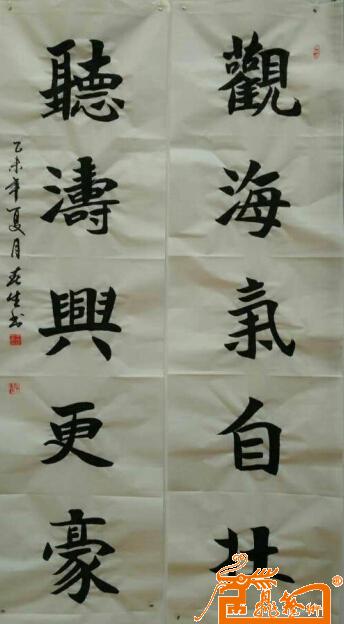 觀海氣自壯
聽濤興更豪
乙未年夏月春生书